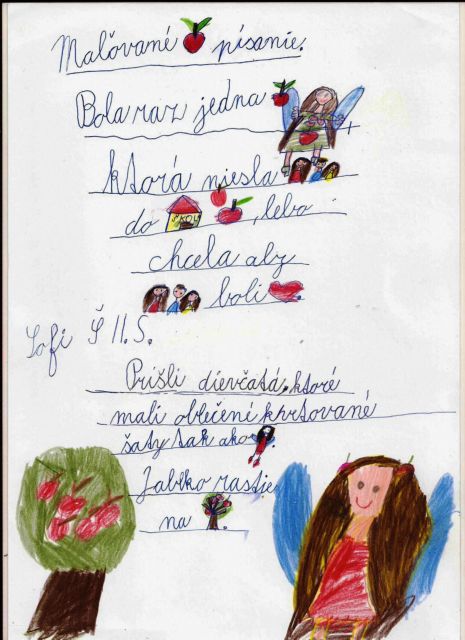 Maľované písanie.
Bola raz jedna
ktorá niesla
ŠKOLA
do , lebo
chcela aby
boli .
Sofi Š II.S.
Prišli dievčatá, ktoré
mali oblečené khrtované
šaty tak ako
Jablko rastie
na .